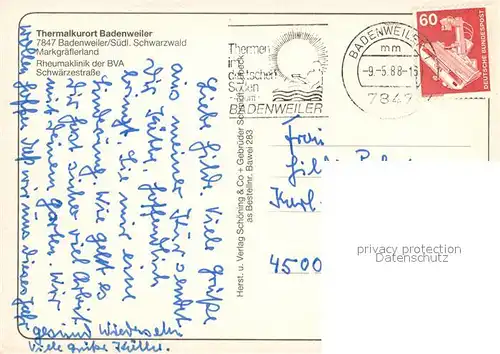 Thermalkurort Badenweiler
7847 Badenweiler/Südl. Schwarzwald
Markgräflerland
Rheumaklinik der BVA
Schwärzestraße
Liebe Hilde. Viele Grüße
aus meiner Kur sendet
Dir Käthe. Hoffentlich
bringt sie mir eine
Linderung. Wie geht es
Dir hast schon viel Arbeit
mit Deinem Garten. Wir
wollen hoffen daß wir uns dieses Jahr
gesund Wiedersehen
Viele Grüße Käthe.
Herst. u. Verlag Schöning & Co + Gebrüder Schmidt, Lübeck
as Bestellnr. Bawei 283
Thermen
im
deutschen
Süden
BADENWEILER
BADENWEILER
mm
-9.-5.88-15
7847
60
DEUTSCHE BUNDESPOST
Frau
Hilde
Karl
4500
privacy protection
Datenschutz AK